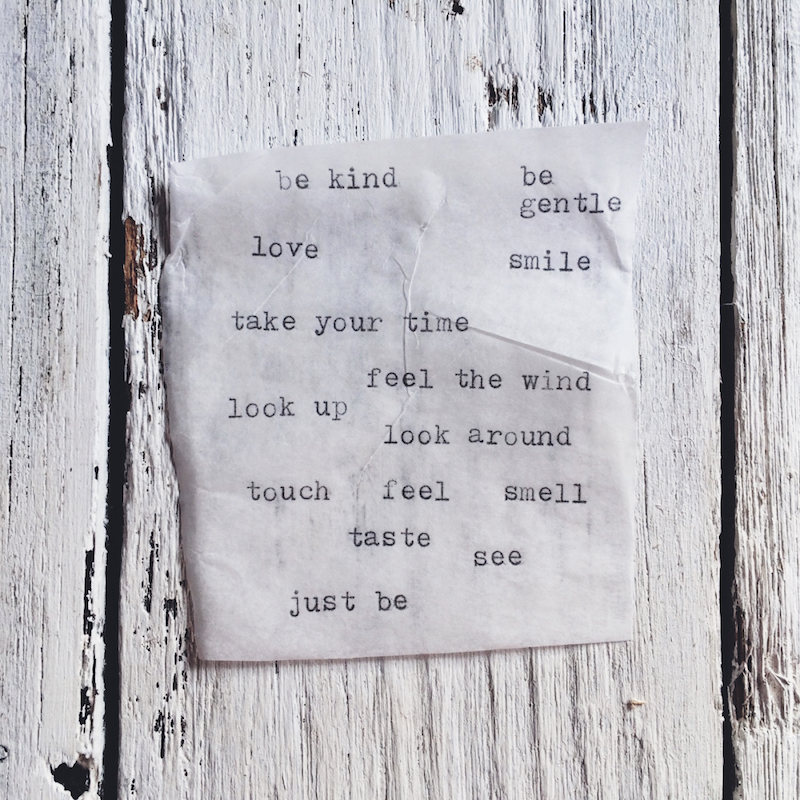 be kind be
gentle
love smile
take your time
feel the wind
look up
look around
touch feel smell
taste
see
just be